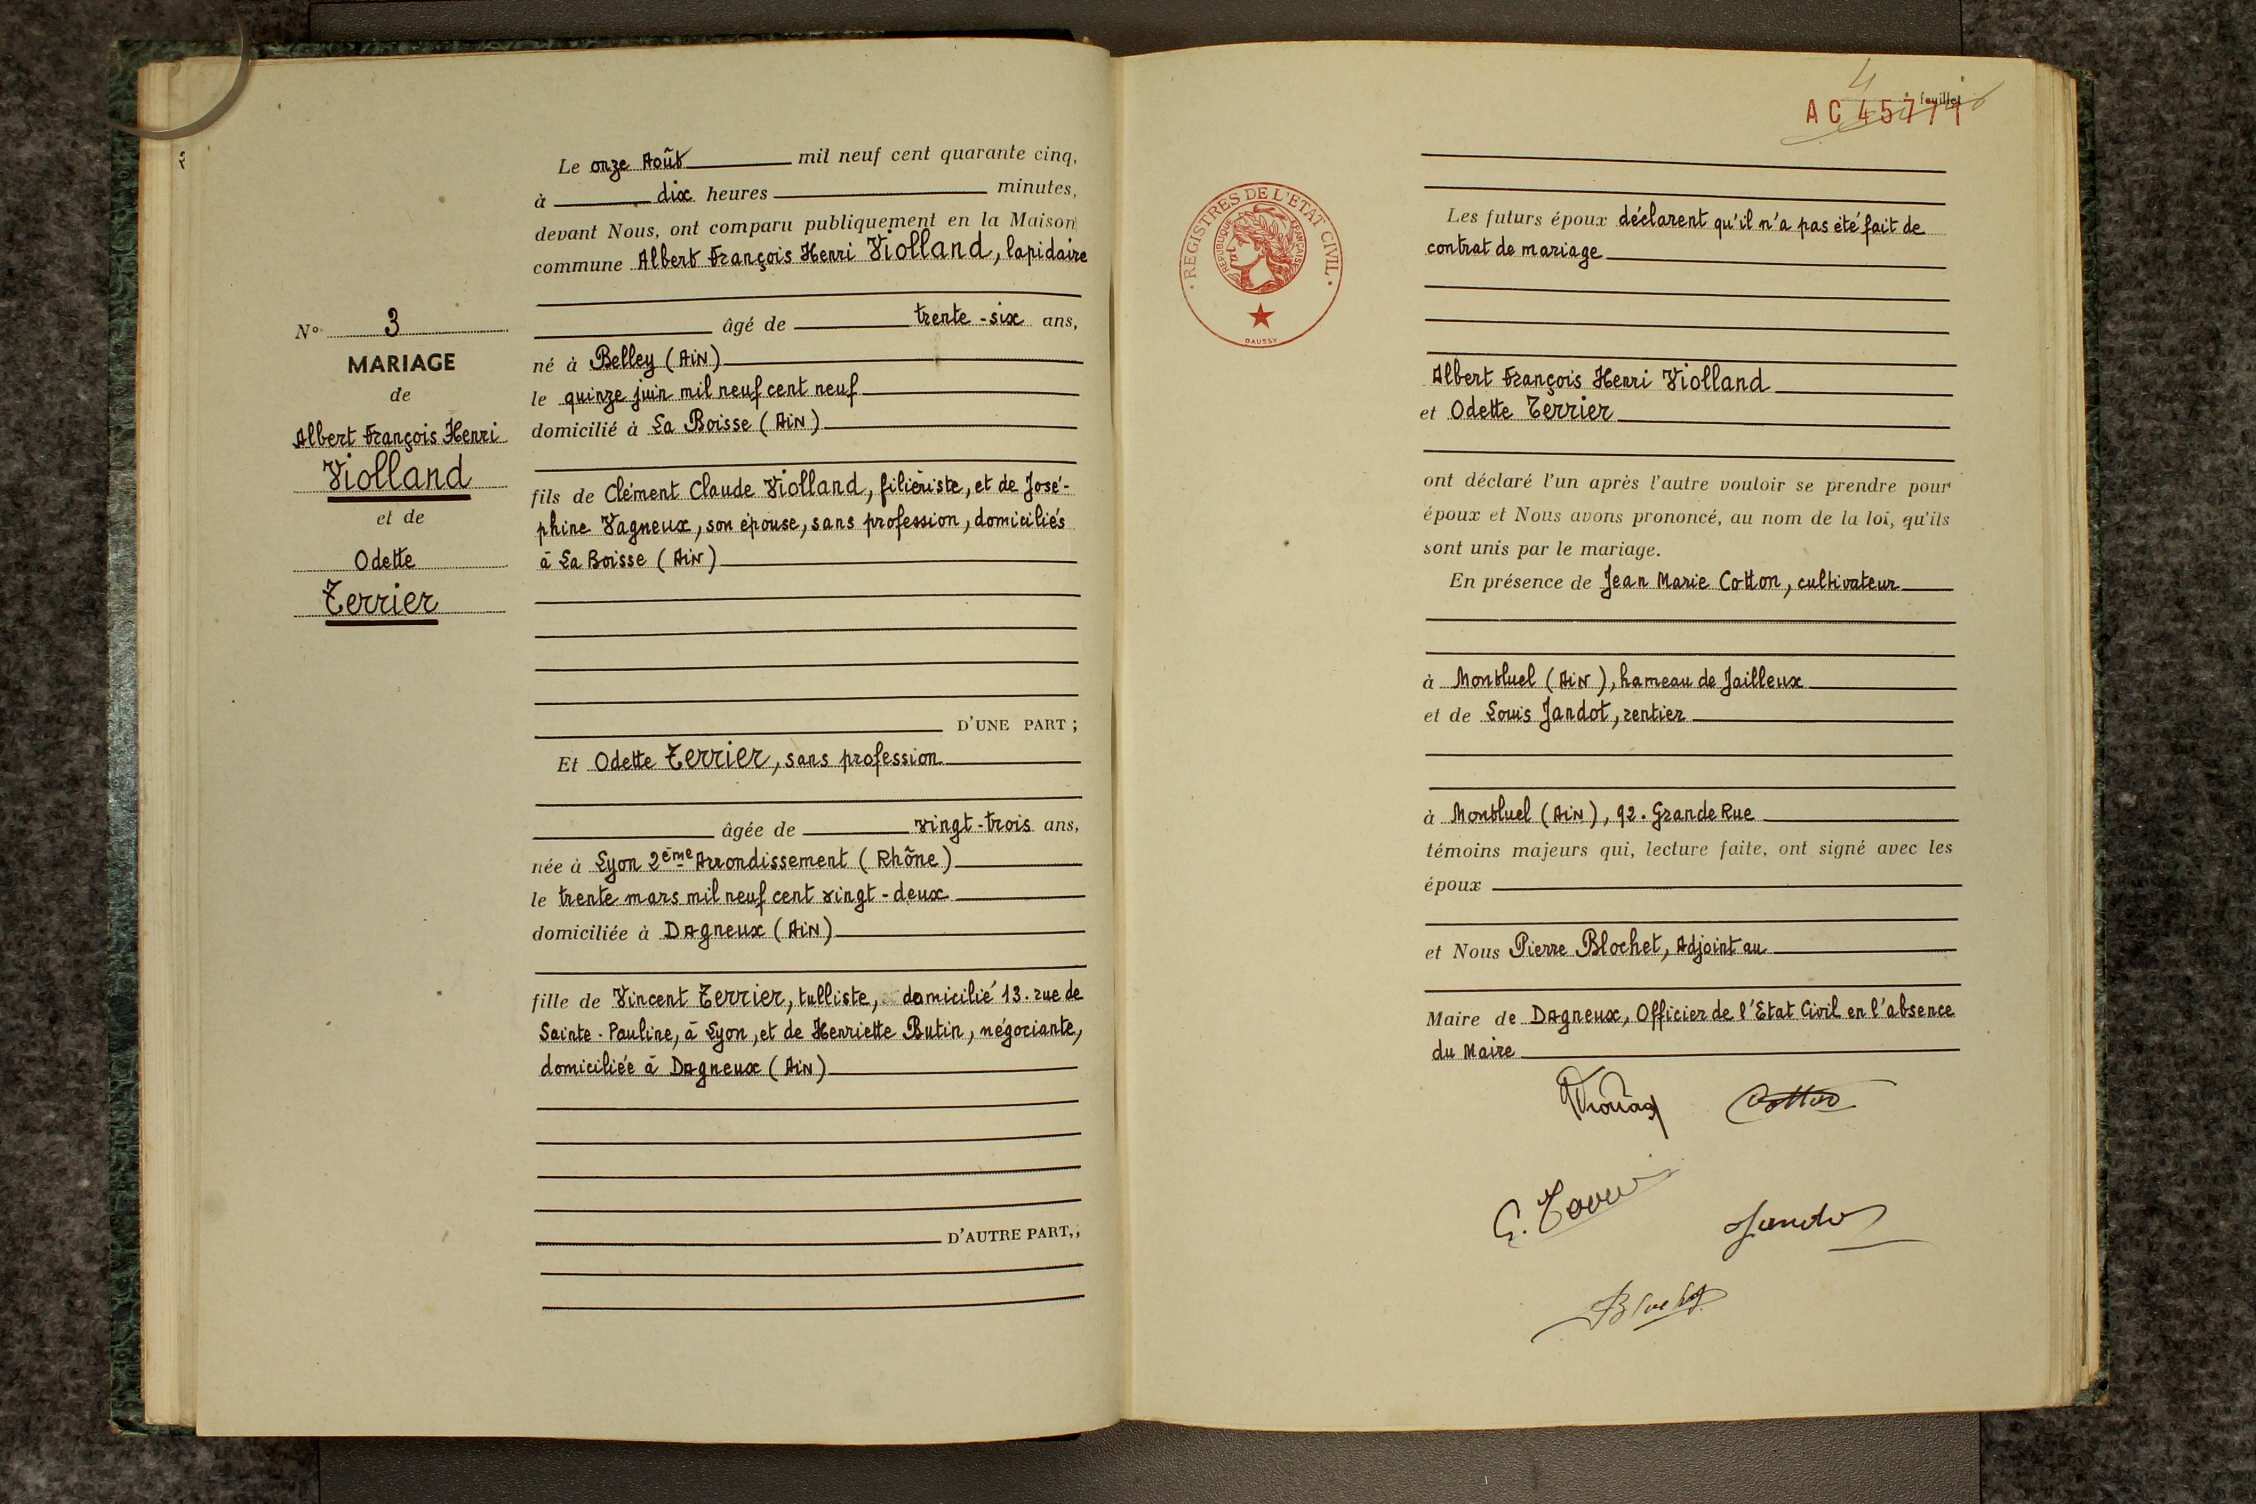 Le onze Août mil neuf cent quarante cinq,
à dix heures minutes,
devant Nous, ont comparu publiquement en la Maison
commune Albert François Henri Violland, lapidaire
âgé de trente-six ans,
né à Belley (Ain)
le quinze juin mil neuf cent neuf
domicilié à La Boisse (Ain)
fils de Clément Claude Violland, filièriste, et de José-
phine Vagneux, son épouse, sans profession, domiciliés
à La Boisse (Ain)
D'UNE PART ;
Et Odette Terrier, sans profession
âgée de vingt-trois ans,
née à Lyon 2ème Arrondissement (Rhône)
le trente mars mil neuf cent vingt-deux
domiciliée à Dagneux (Ain)
fille de Vincent Terrier, tulliste, domicilié 13. rue de
Sainte-Pauline, à Lyon, et de Henriette Butin, négociante,
domiciliée à Dagneux (Ain)
D'AUTRE PART,,
N° 3
MARIAGE
de
Albert François Henri
Violland
et de
Odette
Terrier
4
feuillet
AC 45771
REGISTRES DE L'ETAT CIVIL
REPUBLIQUE FRANÇAISE
DAUSSY
Les futurs époux déclarent qu'il n'a pas été fait de
contrat de mariage
Albert François Henri Violland
et Odette Terrier
ont déclaré l'un après l'autre vouloir se prendre pour
époux et Nous avons prononcé, au nom de la loi, qu'ils
sont unis par le mariage.
En présence de Jean Marie Cotton, cultivateur
à Montluel (Ain), hameau de Jailleux
et de Louis Jandot, rentier
à Montluel (Ain), 92. Grande Rue
témoins majeurs qui, lecture faite, ont signé avec les
époux
et Nous Pierre Blochet, Adjoint au
Maire de Dagneux, Officier de l'Etat Civil en l'absence
du Maire